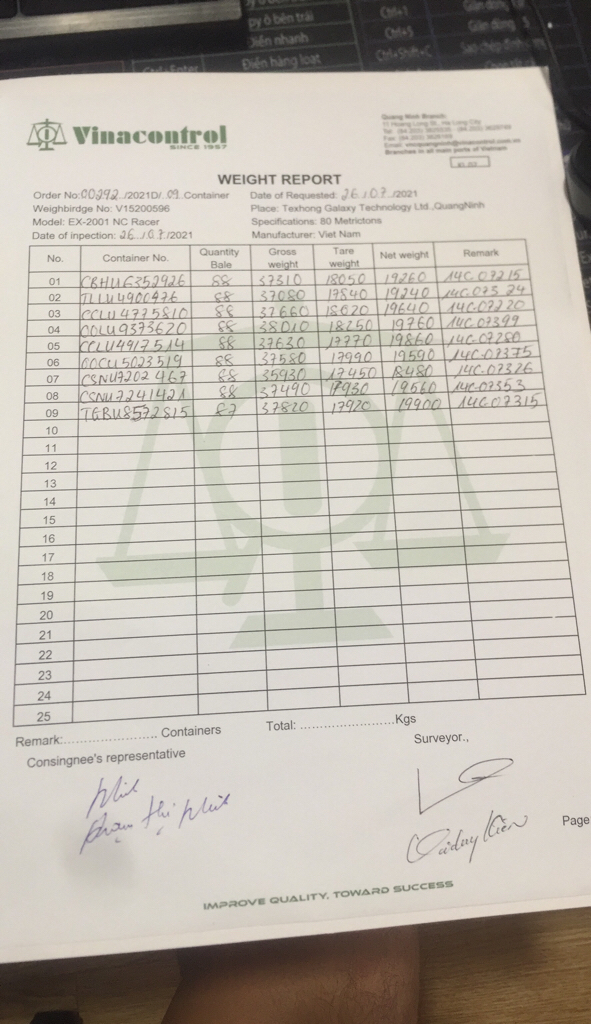 py ô bên trái
Ctrl+1
Điền nhanh
Ctrl+5
Điền hàng loạt
Ctrl+Shift+C
Ctrl+Enter
Vinacontrol
SINCE 1957
Quang Ninh Branch:
Branches in all main ports of Vietnam
WEIGHT REPORT
Order No:00292../2021D/..09..Container Date of Requested: 26/07/2021
Weighbirdge No: V15200596 Place: Texhong Galaxy Technology Ltd.,QuangNinh
Model: EX-2001 NC Racer Specifications: 80 Metrictons
Date of inpection: 26/07/2021 Manufacturer: Viet Nam
No. Container No. Quantity Bale Gross weight Tare weight Net weight Remark
01 CBHU6352926 88 37310 18050 19260 14C.07215
02 TLLU4900476 88 37080 17840 19240 14C.07324
03 CCLU4775810 88 37660 18020 19640 14C.07220
04 COLU9373620 88 38010 18250 19760 14C.07399
05 CCLU4917514 88 37630 17770 19860 14C.07280
06 OOCU5023519 88 37580 17990 19590 14C.07375
07 CSNU7202467 88 35930 17450 18480 14C.07326
08 CSNU7241421 88 37490 17930 19560 14C.07353
09 TGBU8572815 87 37820 17920 19900 14C.07315
10
11
12
13
14
15
16
17
18
19
20
21
22
23
24
25
Remark:........................ Containers Total: ........................Kgs
Consingnee's representative Surveyor.,
Phạm Thị
Page
IMPROVE QUALITY, TOWARD SUCCESS